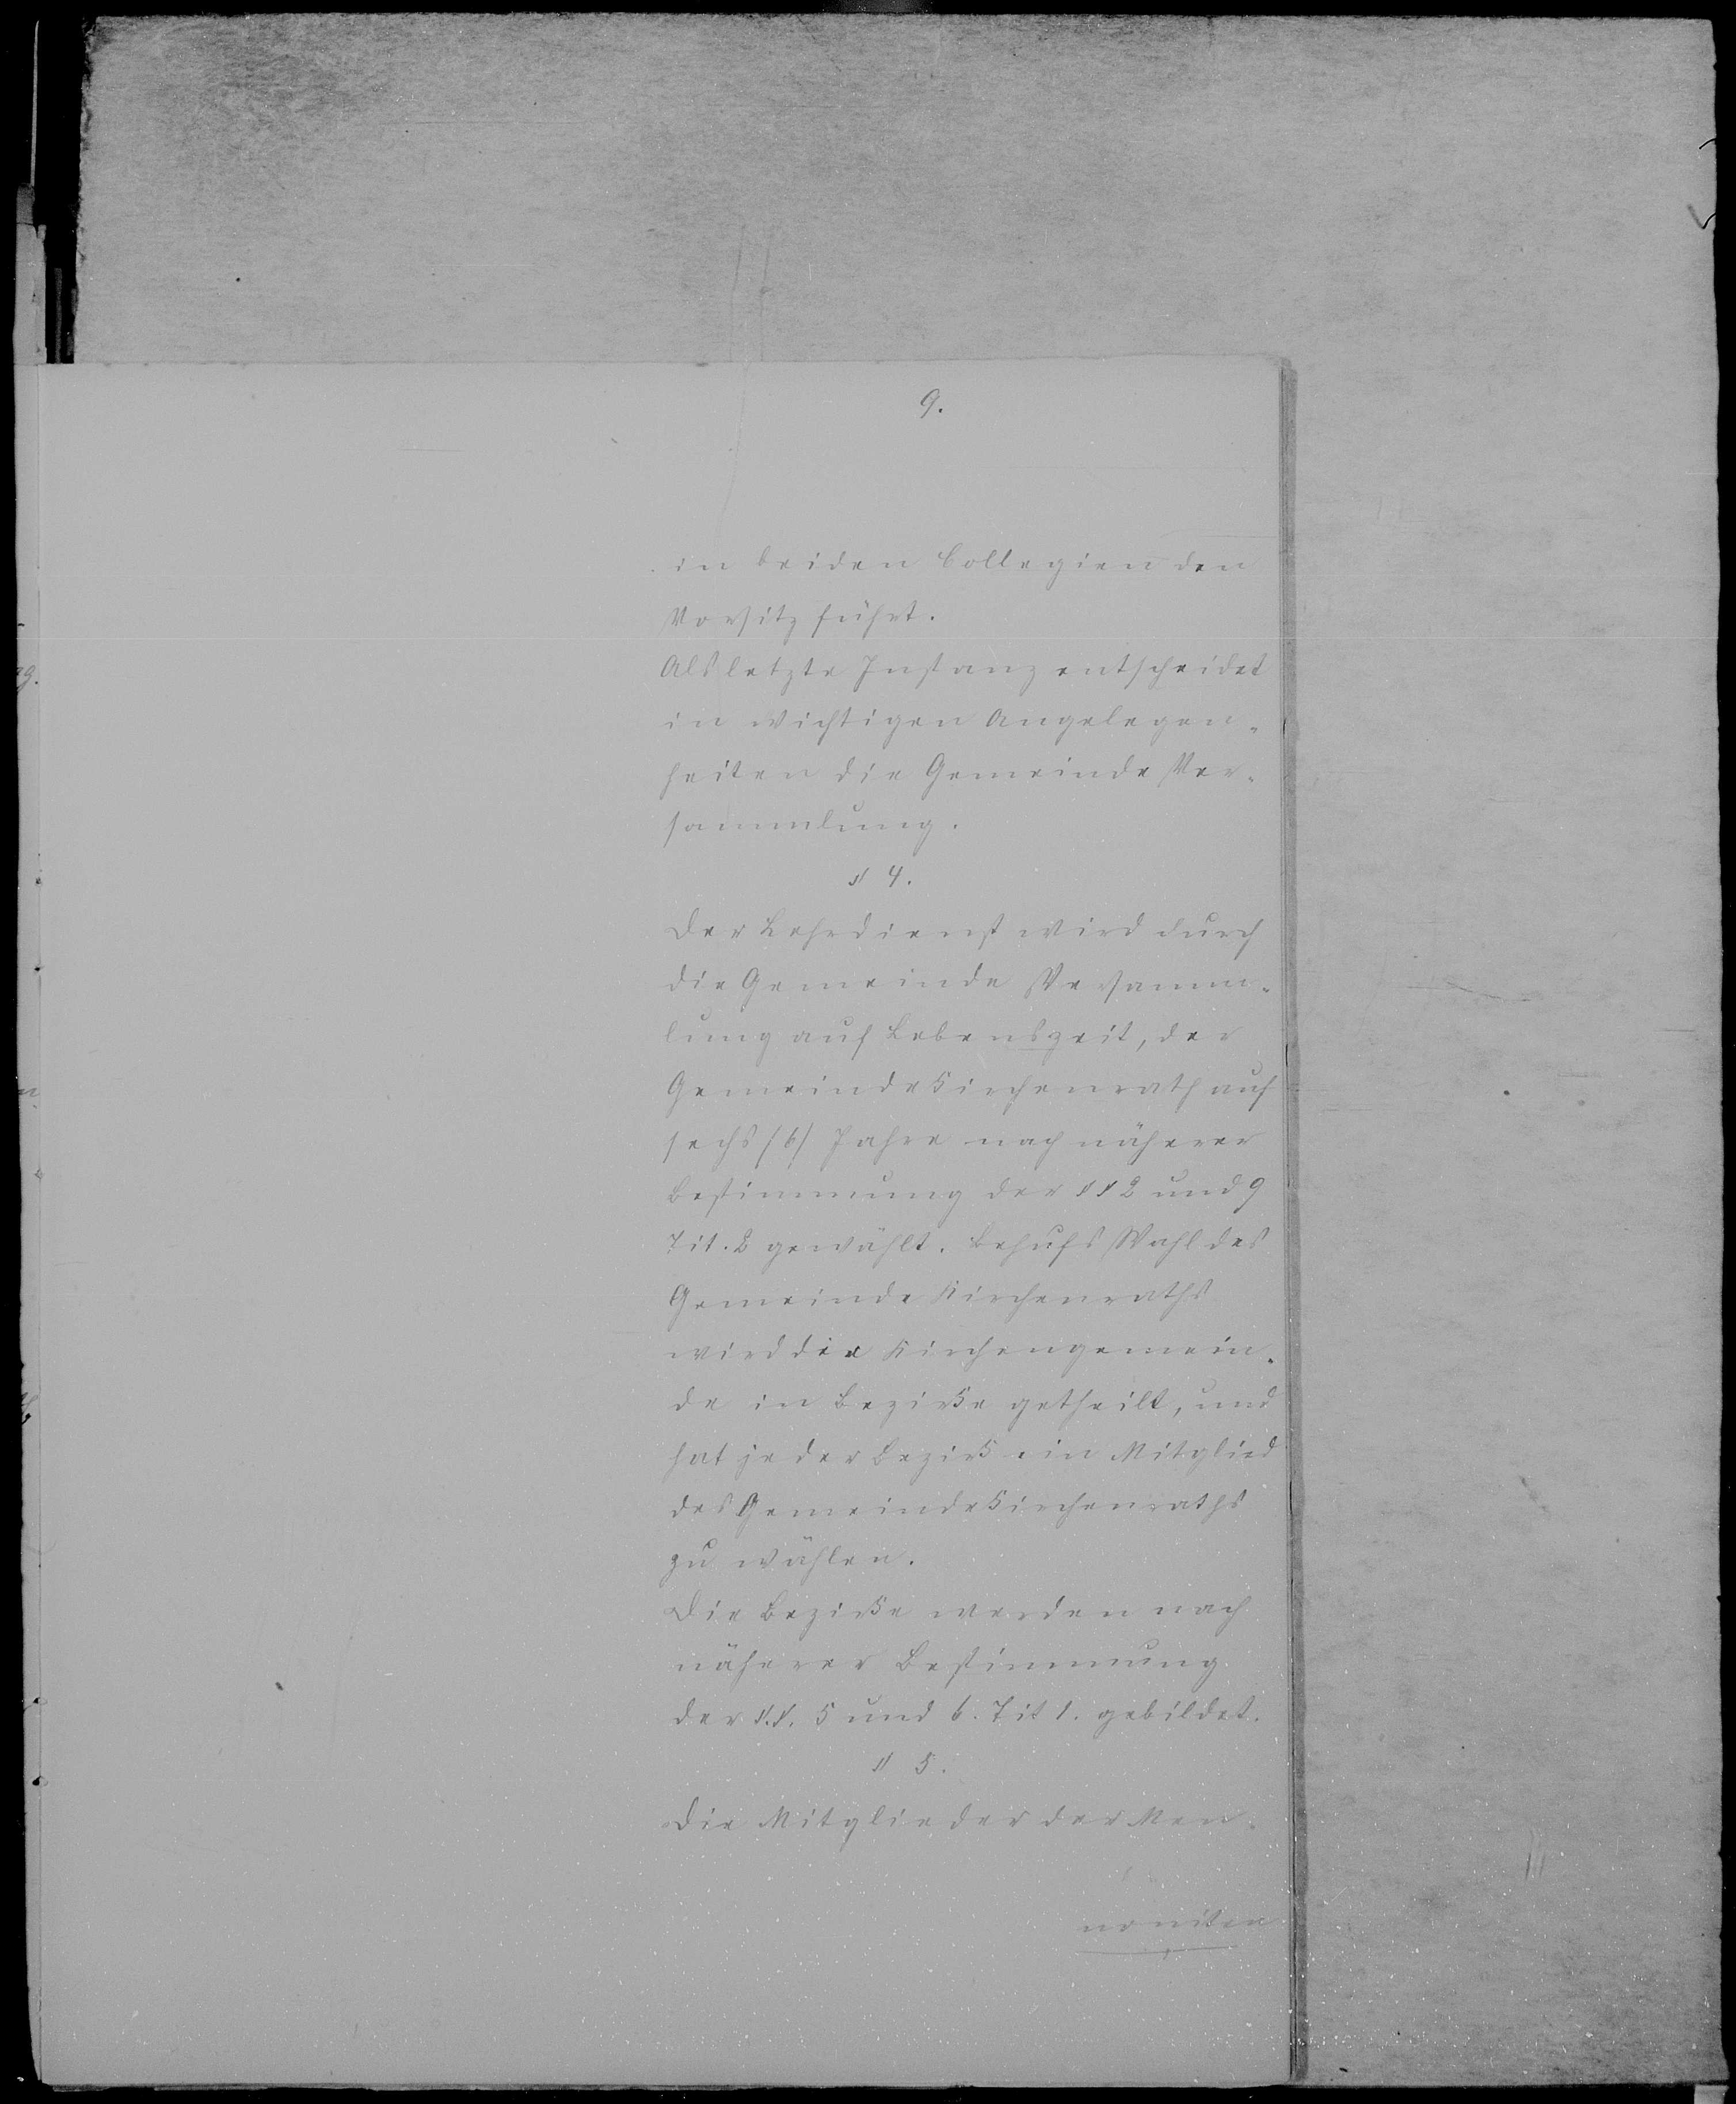 9.
in beiden Collegien den
Vorsitz führt.
Als letzte Instanz entscheidet
in wichtigen Angelegen-
heiten die Gemeinde Ver-
sammlung.
§ 4.
Der Lehrdienst wird durch
die Gemeinde Versamm-
lung auf Lebenszeit, der
Gemeindekirchenrath auf
sechs /6/ Jahre nach näherer
Bestimmung der §§ 2 und 9
Tit. 2 gewählt. Behufs Wahl des
Gemeinde Kirchenraths
wird die Kirchengemein-
de in Bezirke getheilt, und
hat jeder Bezirk ein Mitglied
des Gemeindekirchenraths
zu wählen.
Die Bezirke werden nach
näherer Bestimmung
der §.§. 5 und 6. Tit 1. gebildet.
§ 5.
Die Mitglieder der Men-
noniten